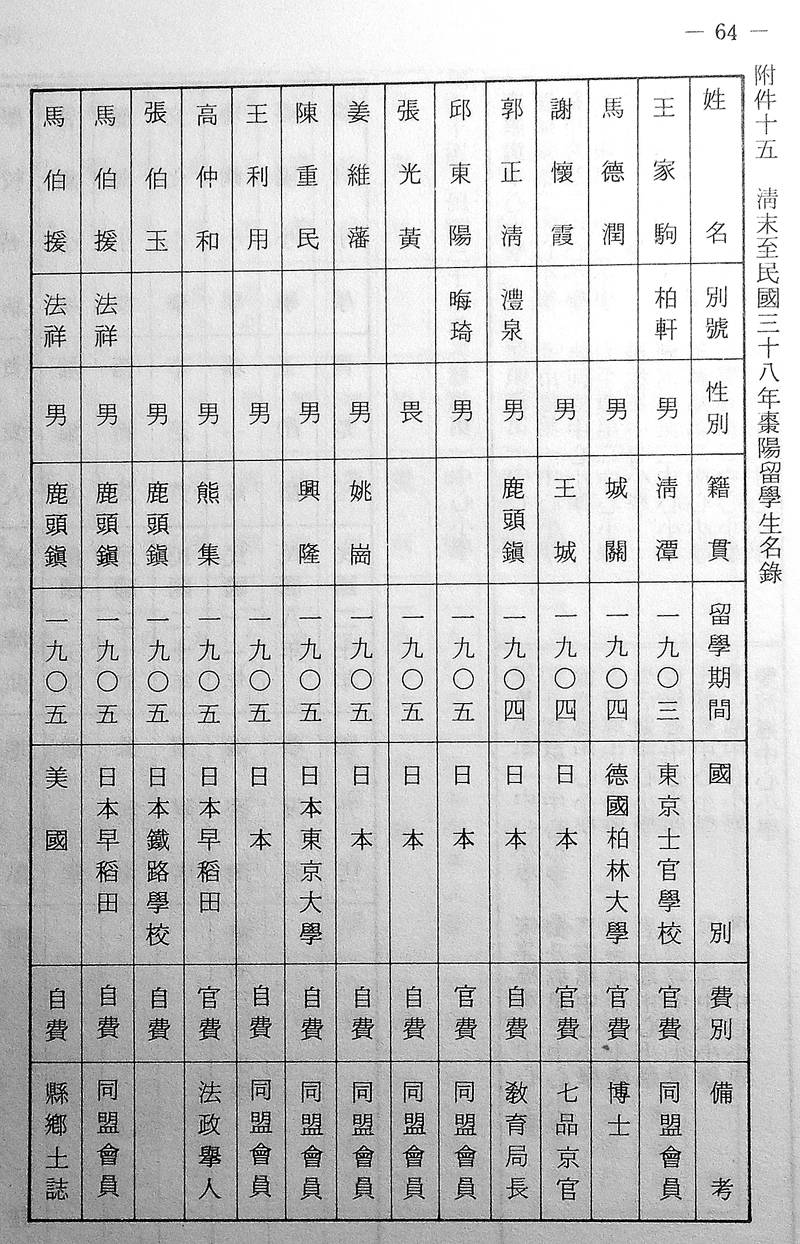 — 64 —
附件十五　清末至民國三十八年棗陽留學生名錄
姓名 別號 性別 籍貫 留學期間 國別 費別 備考
王家駒 柏軒 男 清潭 一九〇三 東京士官學校 官費 同盟會員
馬德潤 男 城關 一九〇四 德國柏林大學 官費 博士
謝懷霞 男 王城 一九〇四 日本 官費 七品京官
郭正清 澧泉 男 鹿頭鎮 一九〇四 日本 自費 教育局長
邱東陽 晦琦 男 一九〇五 日本 官費 同盟會員
張光黃 畏 一九〇五 日本 自費 同盟會員
姜維藩 男 姚崗 一九〇五 日本 自費 同盟會員
陳重民 男 興隆 一九〇五 日本東京大學 自費 同盟會員
王利用 男 一九〇五 日本 自費 同盟會員
高仲和 男 熊集 一九〇五 日本早稻田 官費 法政舉人
張伯玉 男 鹿頭鎮 一九〇五 日本鐵路學校 自費
馬伯援 法祥 男 鹿頭鎮 一九〇五 日本早稻田 自費 同盟會員
馬伯援 法祥 男 鹿頭鎮 一九〇五 美國 自費 縣鄉土誌